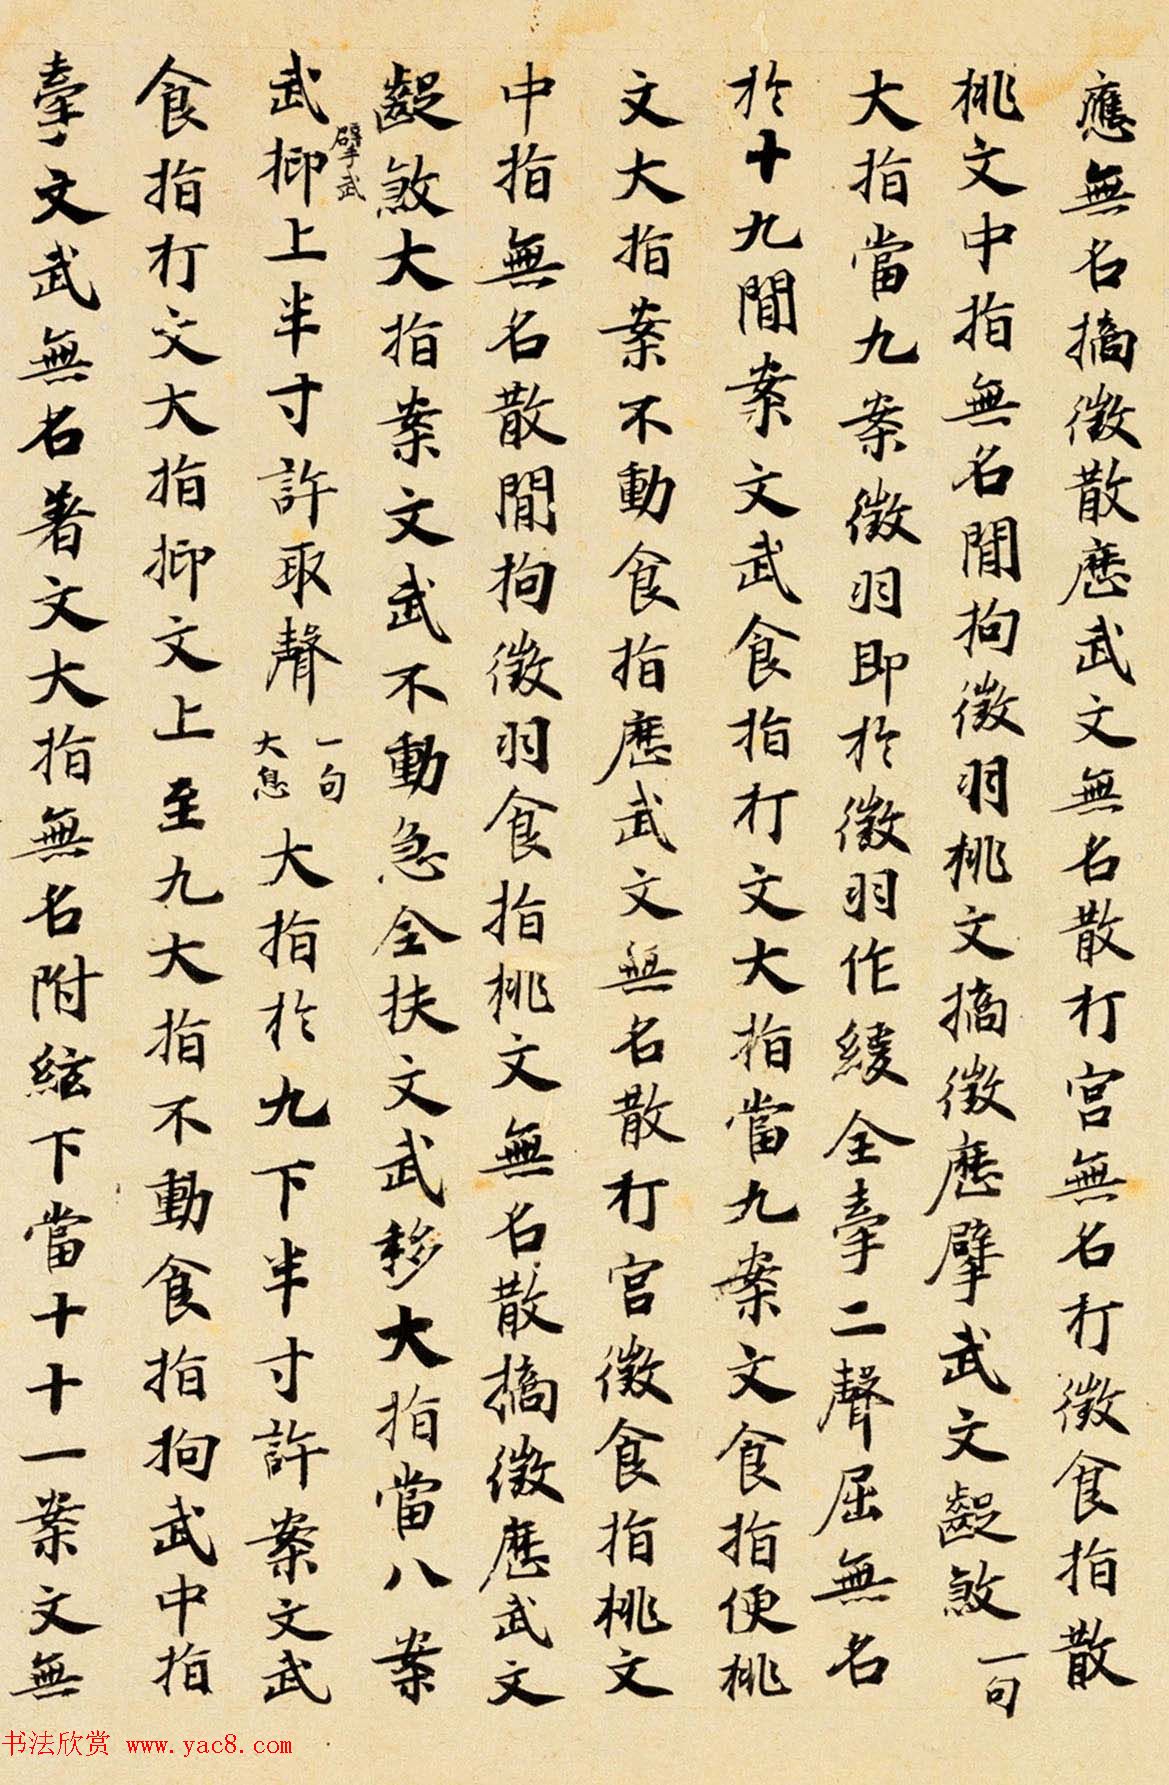 應無名擿徵散歷武文無名散打宮無名打徵食指散
桃文中指無名間拘徵羽桃文擿徵歷擘武文齪煞一句
大指當九案徵羽即於徵羽作緩全牽二聲屈無名
於十九間案文武食指打文大指當九案文食指便桃
文大指案不動食指歷武文無名散打宮徵食指桃文
中指無名散間拘徵羽食指桃文無名散擿徵歷武文
齪煞大指案文武不動急全扶文武移大指當八案
擘武
武抑上半寸許取聲一句大息大指於九下半寸許案文武
食指打文大指抑文上至九大指不動食指拘武中指
牽文武無名著文大指無名附絃下當十十一案文無
书法欣赏 www.yac8.com